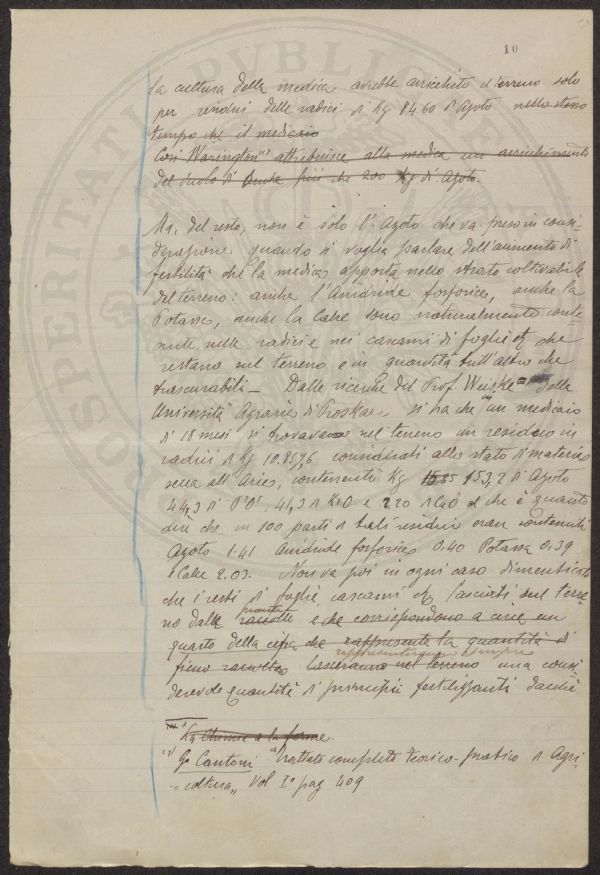 10
la cultura della medica avrebbe arricchito il terreno solo
per residui delle radici di Kg 84.60 d'Azoto nello stesso
tempo che il medicaio
Così Warington⁽¹⁾ attribuisce alla medica un arricchimento
del suolo di anche più che 200 Kg di Azoto.
Ma, del resto, non è solo l'Azoto che va preso in consi-
derazione quando si voglia parlare dell'aumento di
fertilità che la medica apporta nello strato coltivabile
del terreno: anche l'Anidride fosforica, anche la
Potassa, anche la Calce sono naturalmente conte-
nute nelle radici e nei cascami di foglie che
restano sul terreno e in quantità tutt'altro che
trascurabili — Dalle ricerche del Prof. Weiske della
Università Agraria di Proskau si ha che in un medicaio
di 18 mesi si trovavano nel terreno un residuo in
radici di Kg 10.857,6 considerati allo stato di materia
secca all'Aria, contenenti Kg 153,2 d'Azoto
44,3 di P²O⁵, 41,3 di K²O e 220 di CaO il che è quanto
dire che in 100 parti di tali residui eran contenuti
Azoto 1.41 Anidride fosforica 0.40 Potassa 0.39
e Calce 2.03. Non va poi in ogni caso dimenticato
che i resti di foglie, cascami lasciati sul terre-
no dalle raccolte e che corrispondono a circa un
quarto della cifra che rappresenta la quantità di
rappresenteranno sempre
fieno raccolto lasceranno nel terreno una consi-
derevole quantità di principii fertilizzanti
La Chimie a la ferme.
⁽¹⁾ G. Cantoni "Trattato completo teorico-pratico di Agri-
=coltura„ Vol I° pag 409
PROSPERITATI PUBLIC